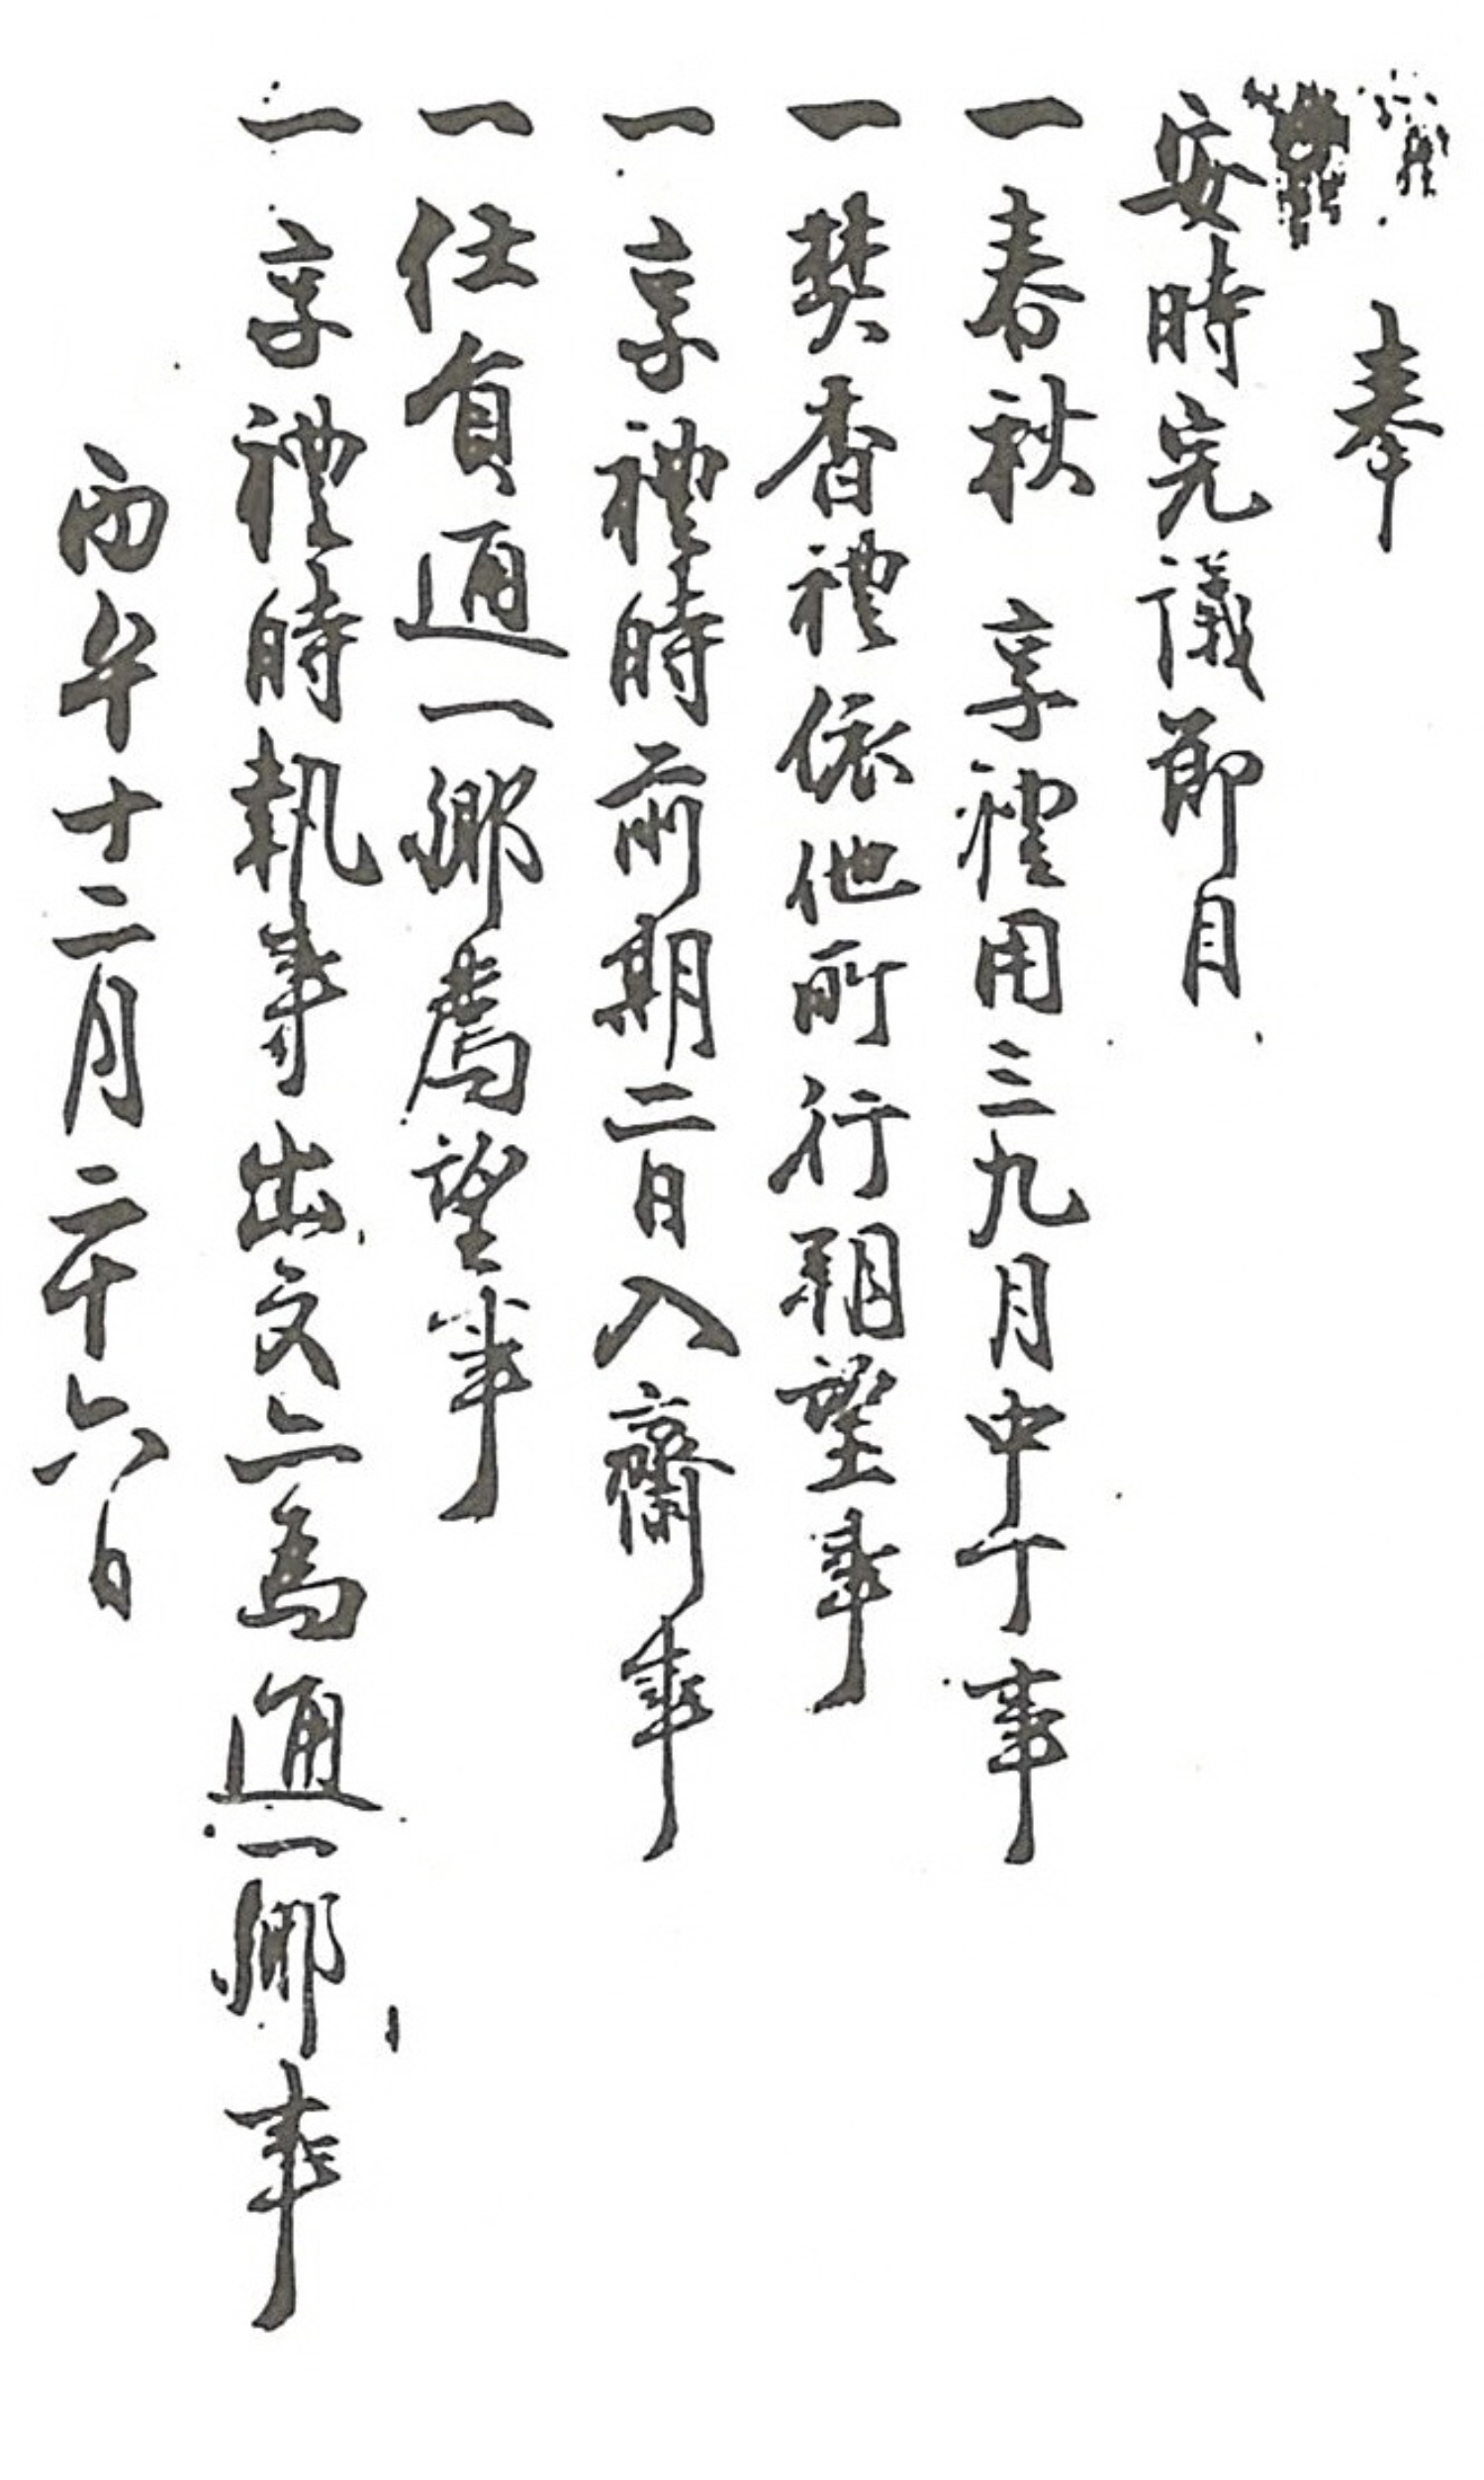 奉
安時完議節目
一春秋 享禮用三九月中丁事
一焚香禮依他所行朔望事
一享禮時前期二日入齋事
一任員通一鄕薦望事
一享禮時執事出文亦爲通一鄕事
丙午十二月二十六日